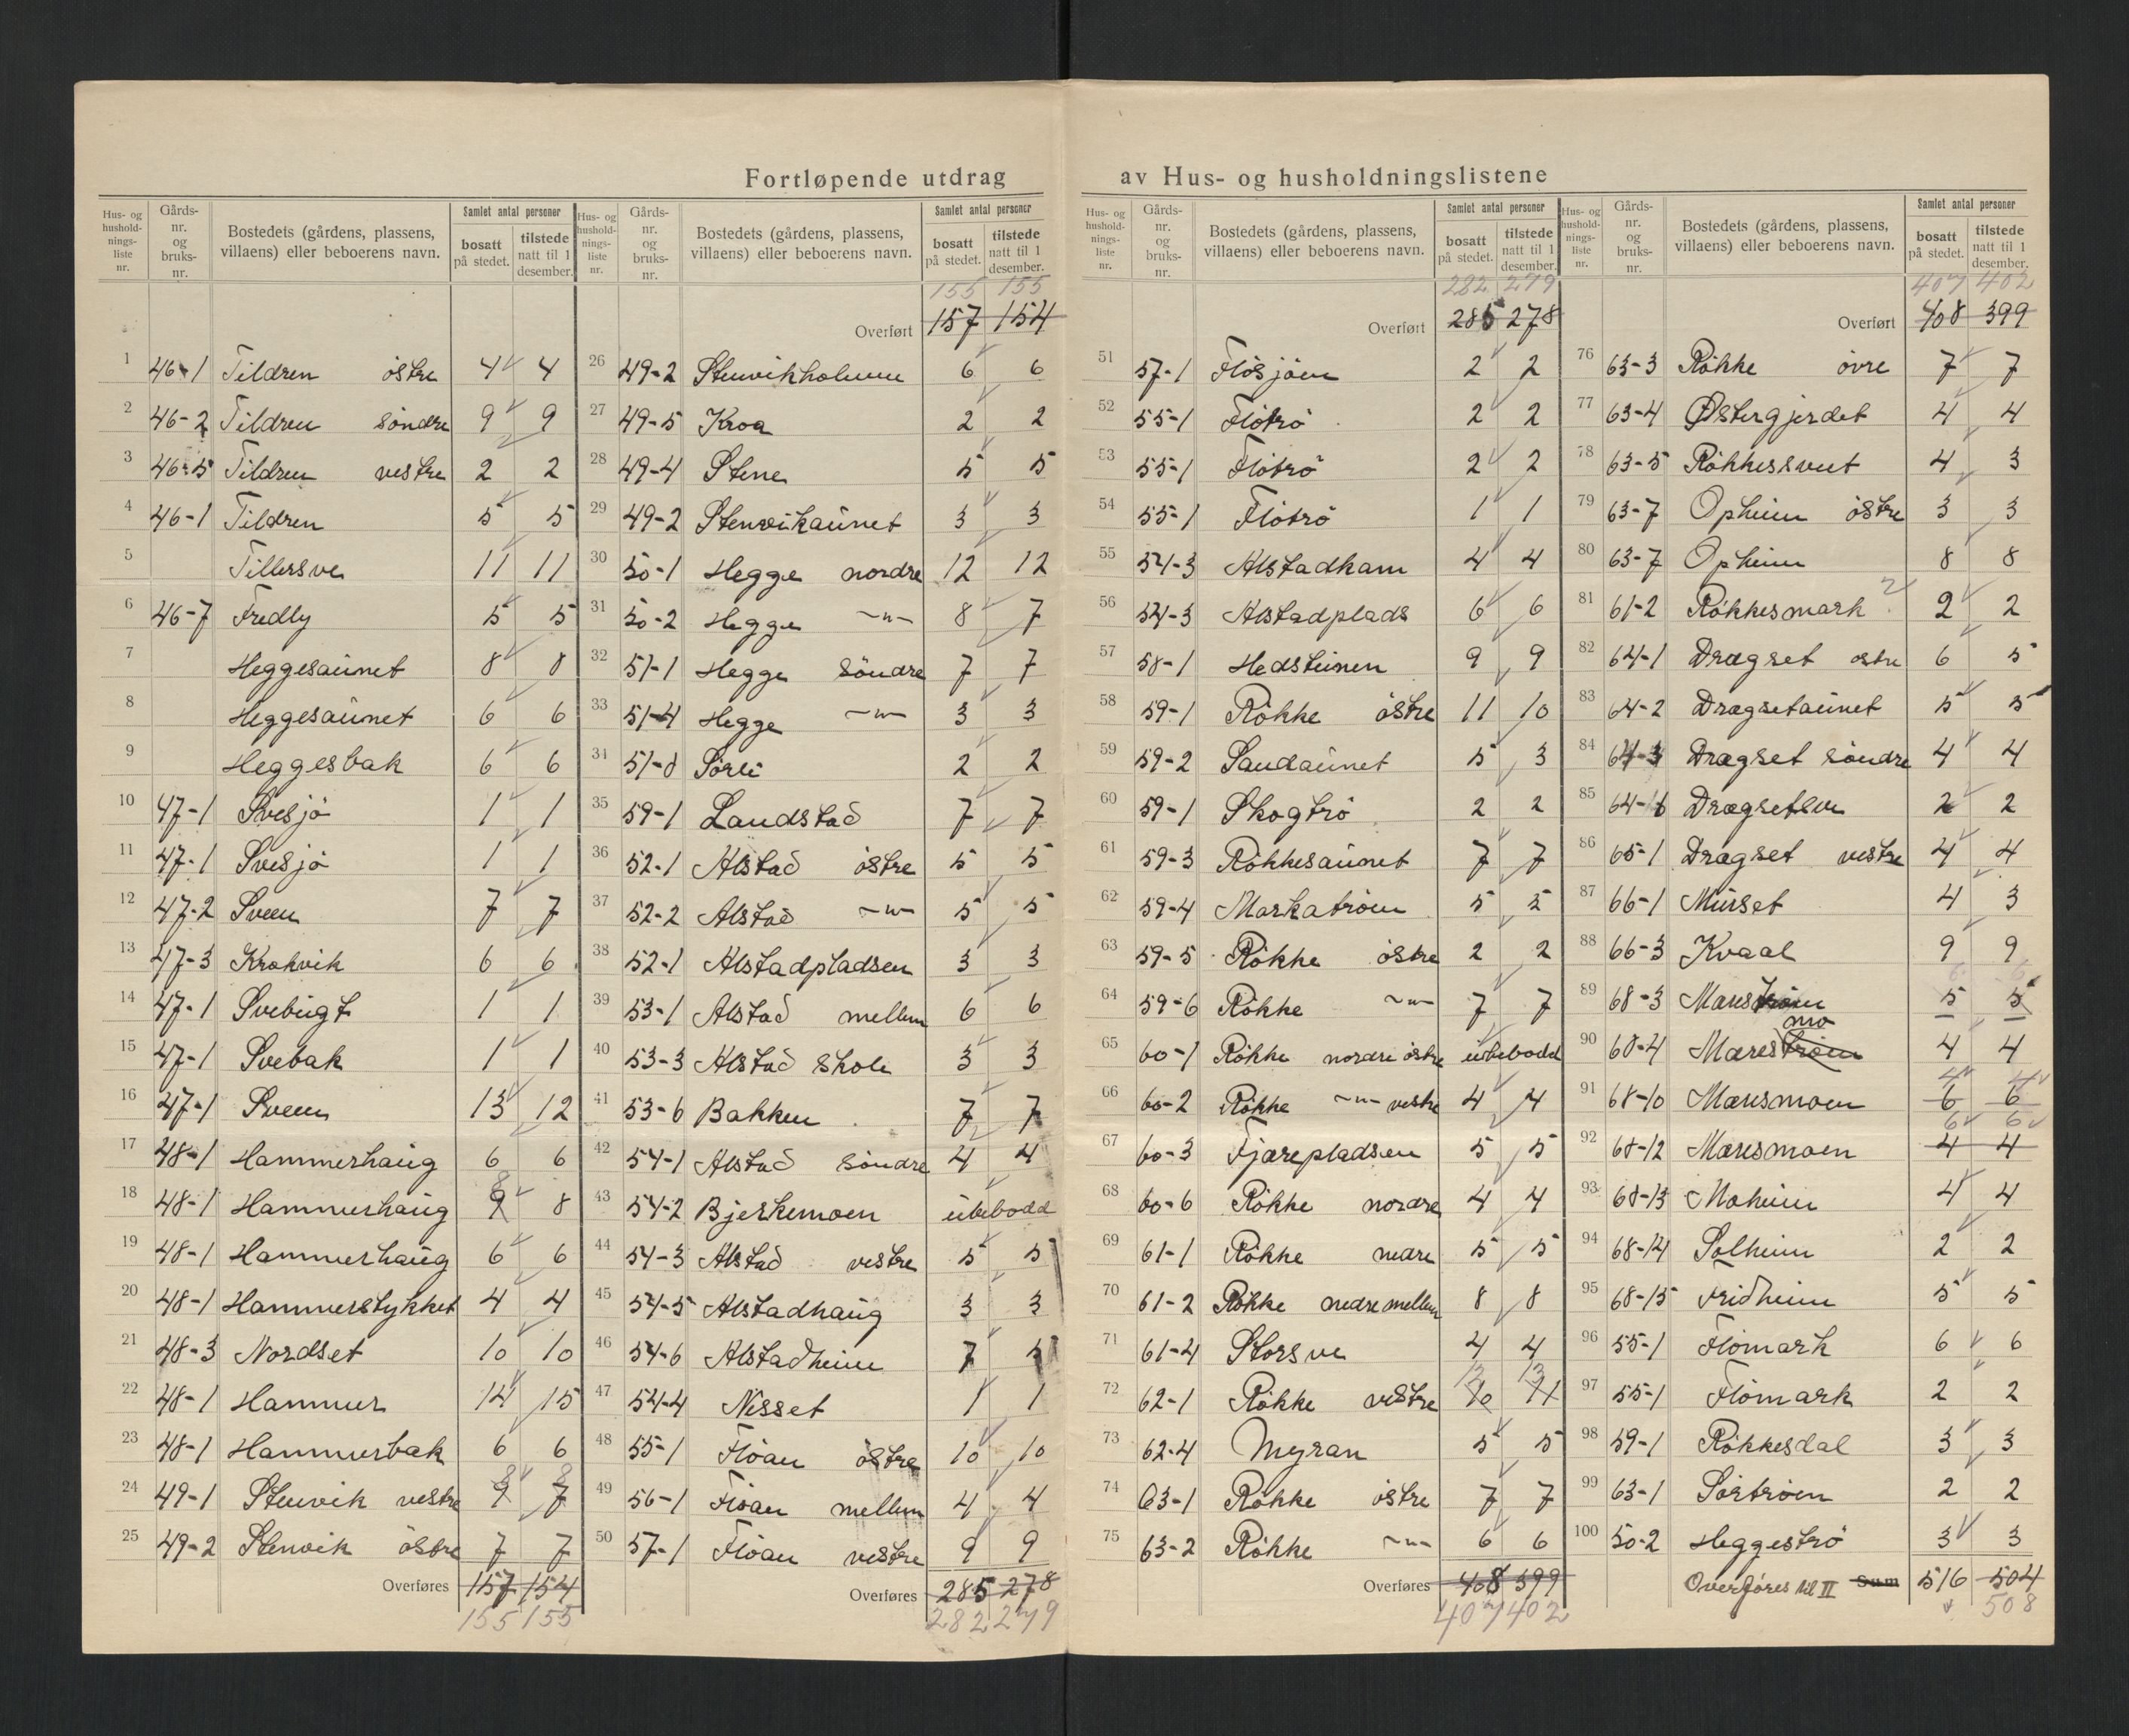 Fortløpende utdrag av Hus- og husholdningslistene
Hus- og hushold-nings-liste nr. Gårds-nr. og bruks-nr. Bostedets (gårdens, plassens, villaens) eller beboerens navn. Samlet antal personer bosatt på stedet. tilstede natt til 1 desember.
1 46-1 Tildren östre 4 4
2 46-2 Tildren söndre 9 9
3 46-5 Tildren vestre 2 2
4 46-1 Tildren 5 5
5 Tillersve 11 11
6 46-7 Fredly 5 5
7 Heggesaunet 8 8
8 Heggesaunet 6 6
9 Heggesbak 6 6
10 47-1 Svesjö 1 1
11 47-1 Svesjö 1 1
12 47-2 Sveen 7 7
13 47-3 Krokvik 6 6
14 47-1 Svebugt 1 1
15 47-1 Svebak 1 1
16 47-1 Sveen 13 12
17 48-1 Hammerhaug 6 6
18 48-1 Hammerhaug 9 8 8
19 48-1 Hammerhaug 6 6
20 48-1 Hammerstykket 4 4
21 48-3 Nordset 10 10
22 48-1 Hammer 14 15
23 48-1 Hammerbak 6 6
24 49-1 Stenvik vestre 9 7 8 8
25 49-2 Stenvik östre 7 7
Overføres 157 154
155 155
Hus- og hushold-nings-liste nr. Gårds-nr. og bruks-nr. Bostedets (gårdens, plassens, villaens) eller beboerens navn. Samlet antal personer bosatt på stedet. tilstede natt til 1 desember.
155 155
Overført 157 154
26 49-2 Stenvikholmen 6 6
27 49-5 Kroa 2 2
28 49-4 Stene 5 5
29 49-2 Stenvikaunet 3 3
30 50-1 Hegge nordre 12 12
31 50-2 Hegge -"- 8 7
32 51-1 Hegge söndre 7 7
33 51-4 Hegge -"- 3 3
34 51-8 Sörli 2 2
35 59-1 Landstad 7 7
36 52-1 Alstad östre 5 5
37 52-2 Alstad -"- 5 5
38 52-1 Alstadpladsen 3 3
39 53-1 Alstad mellem 6 6
40 53-3 Alstad skole 3 3
41 53-6 Bakken 7 7
42 54-1 Alstad söndre 4 4
43 54-2 Bjerkemoen ubebodd
44 54-3 Alstad vestre 5 5
45 54-5 Alstadhaug 3 3
46 54-6 Alstadheim 7 5
47 54-4 Nesset 1 1
48 55-1 Flöan östre 10 10
49 56-1 Flöan mellem 4 4
50 57-1 Flöan vestre 9 9
Overføres 285 278
282 279
Hus- og hushold-nings-liste nr. Gårds-nr. og bruks-nr. Bostedets (gårdens, plassens, villaens) eller beboerens navn. Samlet antal personer bosatt på stedet. tilstede natt til 1 desember.
282 279
Overført 285 278
51 57-1 Flösjöen 2 2
52 55-1 Flötrö 2 2
53 55-1 Flötrö 2 2
54 55-1 Flötrö 1 1
55 54-3 Alstadkam 4 4
56 54-3 Alstadplads 6 6
57 58-1 Hedsteinen 9 9
58 59-1 Rökke östre 11 10
59 59-2 Sandaunet 5 3
60 59-1 Skogtrö 2 2
61 59-3 Rökkesaunet 7 7
62 59-4 Markatröen 5 5
63 59-5 Rökke östre 2 2
64 59-6 Rökke -"- 7 7
65 60-1 Rökke nordre östre ubebodd
66 60-2 Rökke -"- vestre 4 4
67 60-3 Fjærepladsen 5 5
68 60-6 Rökke nordre 4 4
69 61-1 Rökke nedre 5 5
70 61-2 Rökke nedre mellem 8 8
71 61-4 Storsve 4 4
72 62-1 Rökke vestre 10 11 12 13
73 62-4 Myran 5 5
74 63-1 Rökke östre 7 7
75 63-2 Rökke -"- 6 6
Overføres 408 399
407 402
Hus- og hushold-nings-liste nr. Gårds-nr. og bruks-nr. Bostedets (gårdens, plassens, villaens) eller beboerens navn. Samlet antal personer bosatt på stedet. tilstede natt til 1 desember.
407 402
Overført 408 399
76 63-3 Rökke övre 7 7
77 63-4 Østergjerdet 4 4
78 63-5 Rökkessveet 4 3
79 63-7 Opheim östre 3 3
80 63-7 Opheim 8 8
81 61-2 Rökkesmark 2 2
82 64-1 Dragset östre 6 5
83 64-2 Dragsetaunet 5 5
84 64-3 Dragset söndre 4 4
85 64-6 Dragsetsve 2 2
86 65-1 Dragset vestre 4 4
87 66-1 Murset 4 3
88 66-3 Kvaal 9 9
89 68-3 Mæreströem 5 5 6 6
90 68-4 Mæreströen mo 4 4
91 68-10 Mæresmoen 6 6 4 4
92 68-12 Mæresmoen 4 4 6 6
93 68-13 Moheim 4 4
94 68-14 Solheim 2 2
95 68-15 Fridheim 5 5
96 55-1 Flömark 6 6
97 55-1 Flömark 2 2
98 59-1 Rökkesdal 3 3
99 63-1 Sörtröen 2 2
100 50-2 Heggeströ 3 3
Overføres til II Sum 516 504
508